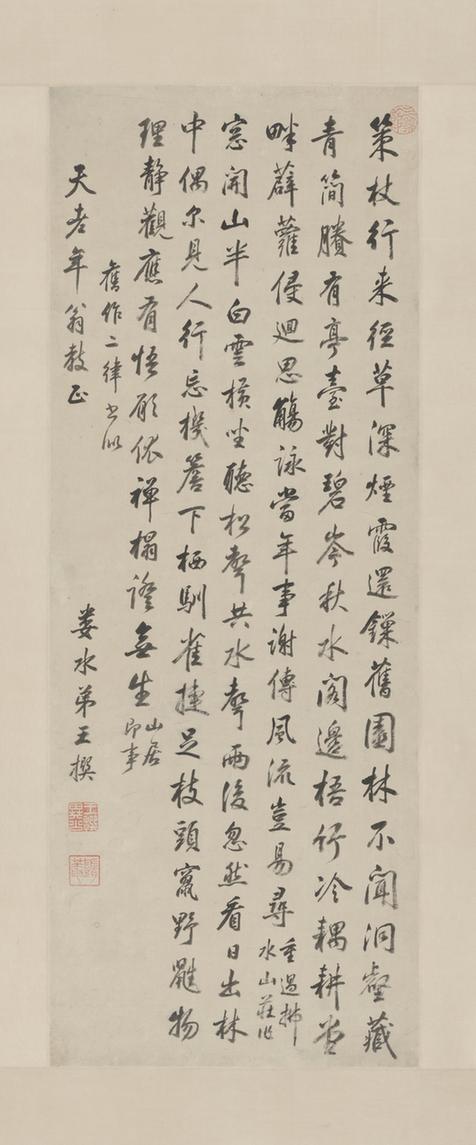 策杖行来径草深煙霞還鏁舊園林不聞洞壑藏
青簡賸有亭臺對碧岑秋水閣邊梧竹冷耦耕堂
畔薜蘿侵迴思觴詠當年事謝傅風流豈易尋
重過拂
水山莊作
窓開山半白雲橫坐聽松聲共水聲雨後忽然看日出林
中偶尔見人行忘機簷下栖馴雀捷足枝頭竄野鼪物
理静觀應有悟願依禅榻證無生
山居
即事
舊作二律書似
天老年翁教正
婁水弟王撰